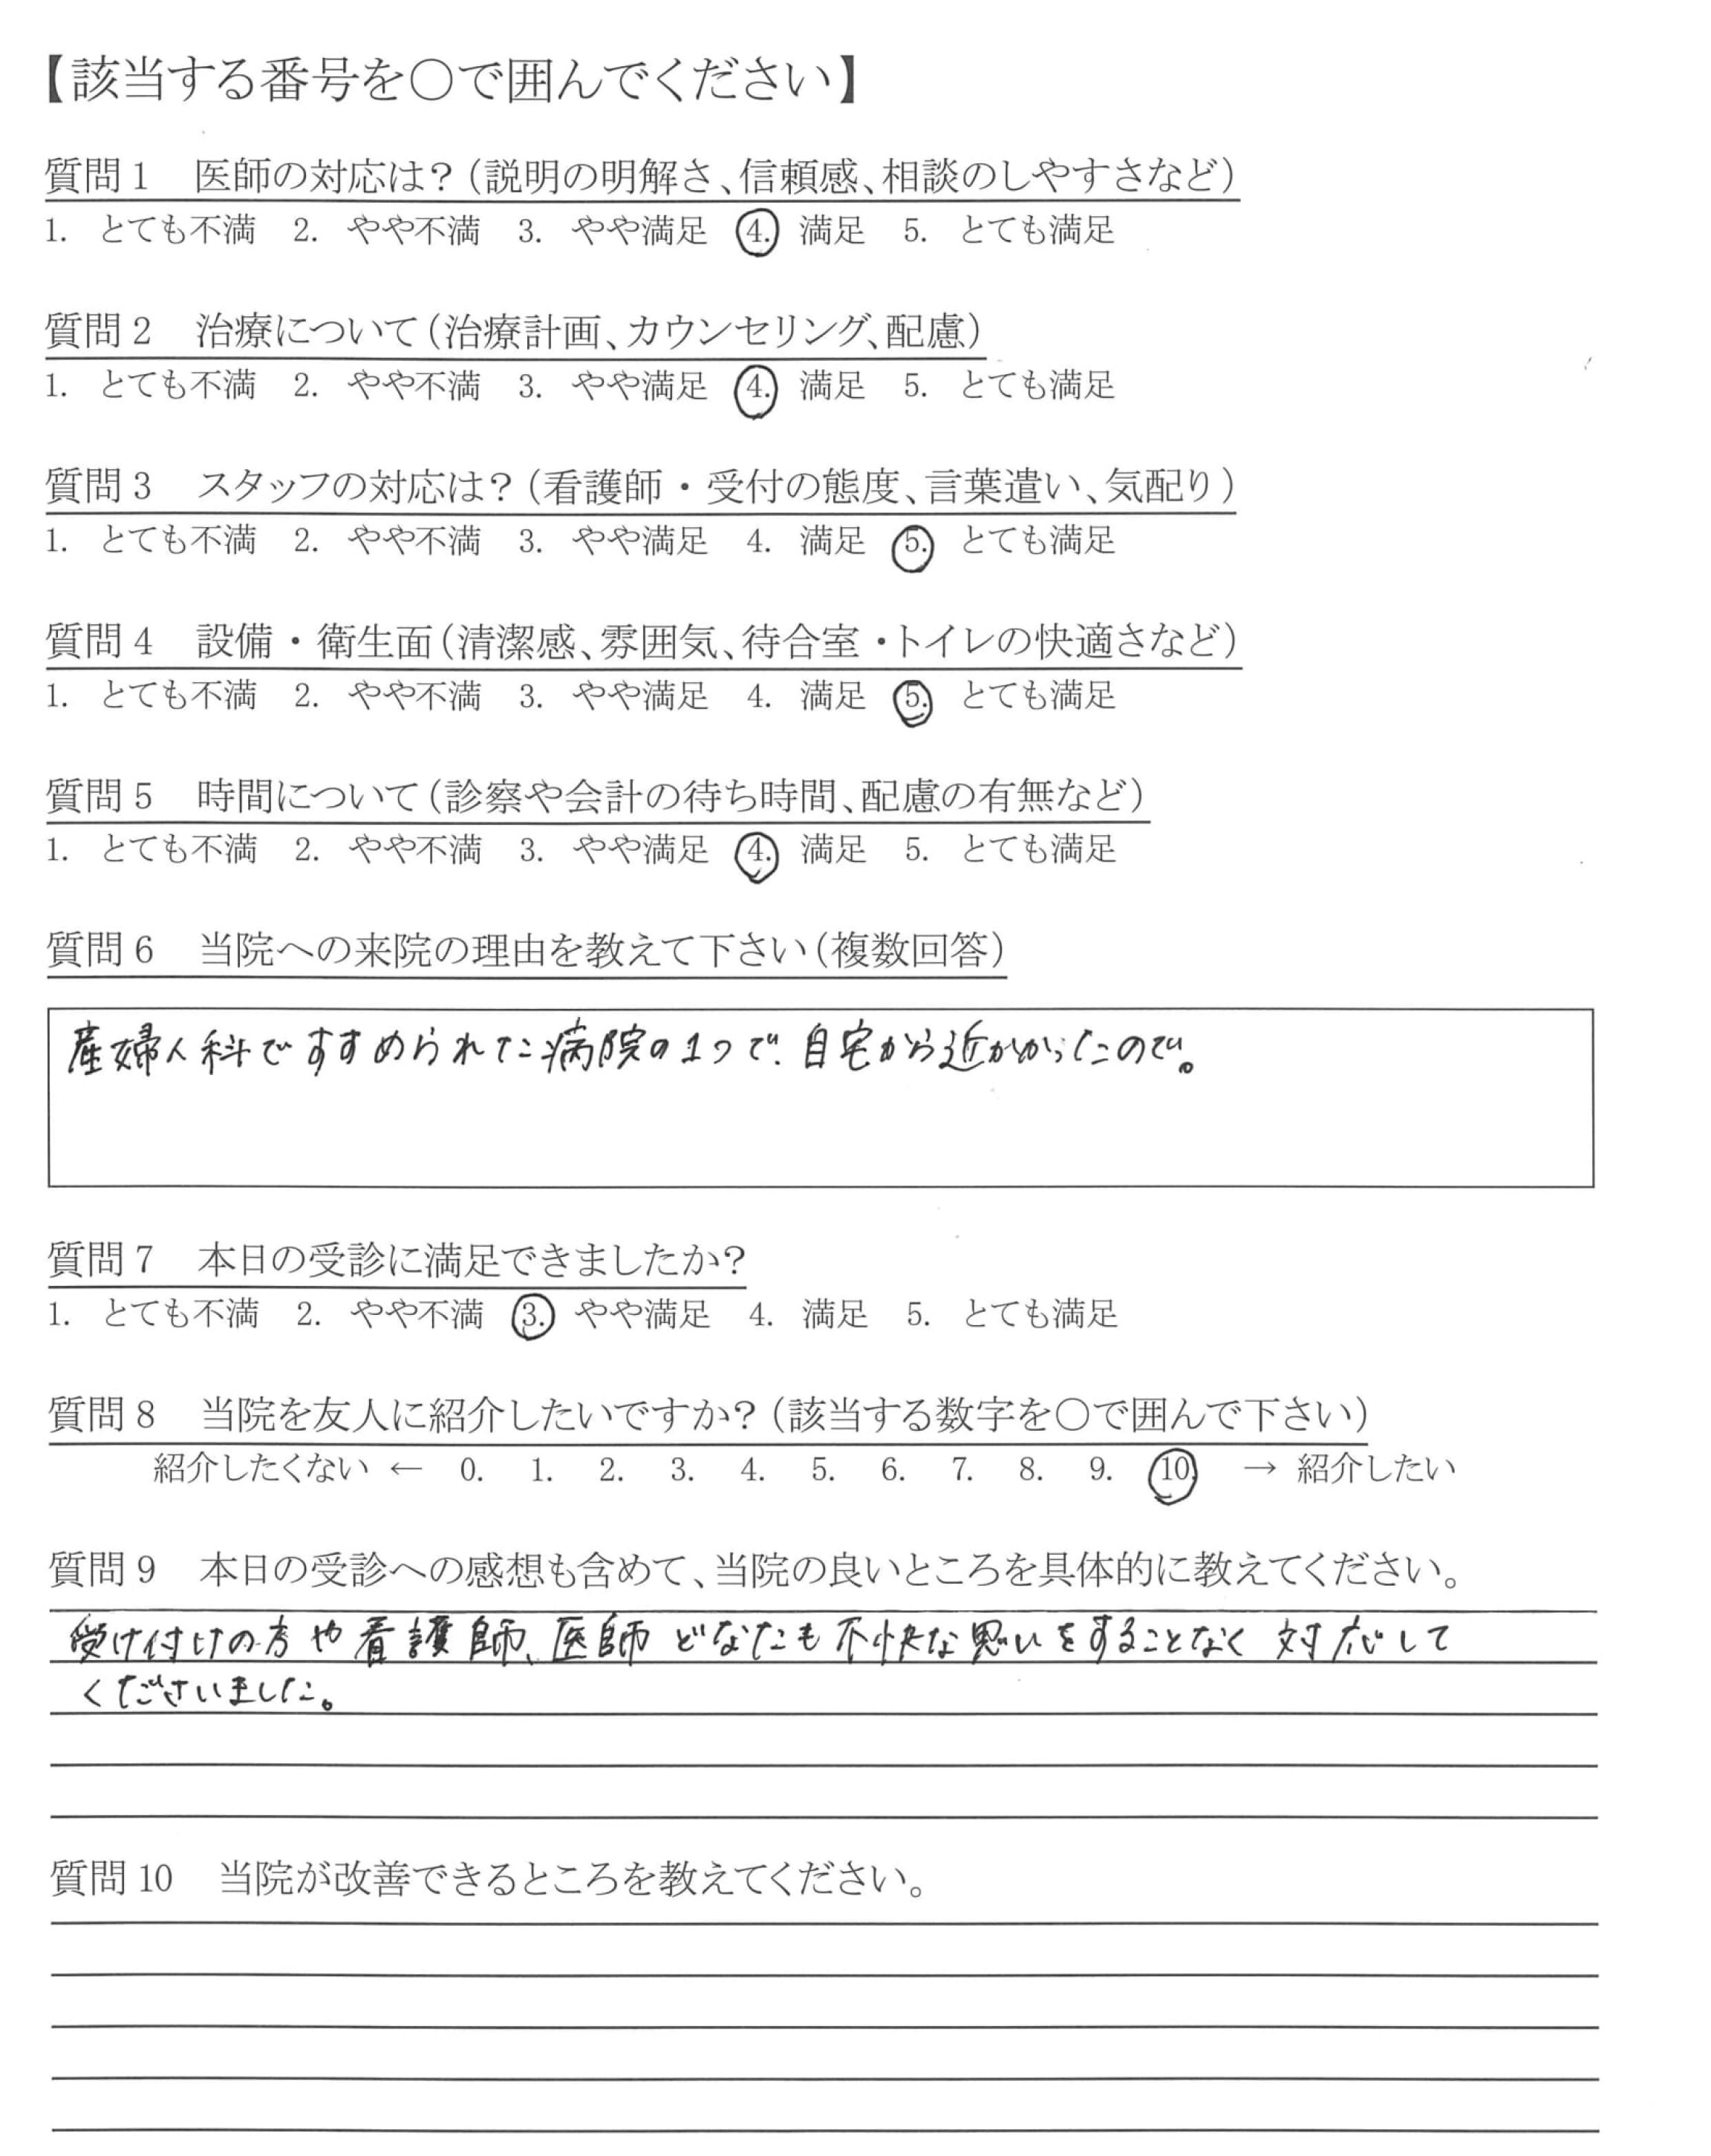 【該当する番号を○で囲んでください】
質問1 医師の対応は?(説明の明解さ、信頼感、相談のしやすさなど)
1. とても不満 2. やや不満 3. やや満足 4. 満足 5. とても満足
質問2 治療について(治療計画、カウンセリング、配慮)
1. とても不満 2. やや不満 3. やや満足 4. 満足 5. とても満足
質問3 スタッフの対応は?(看護師・受付の態度、言葉遣い、気配り)
1. とても不満 2. やや不満 3. やや満足 4. 満足 5. とても満足
質問4 設備・衛生面(清潔感、雰囲気、待合室・トイレの快適さなど)
1. とても不満 2. やや不満 3. やや満足 4. 満足 5. とても満足
質問5 時間について(診察や会計の待ち時間、配慮の有無など)
1. とても不満 2. やや不満 3. やや満足 4. 満足 5. とても満足
質問6 当院への来院の理由を教えて下さい(複数回答)
産婦人科ですすめられた病院の1つで、自宅から近かかったので。
質問7 本日の受診に満足できましたか?
1. とても不満 2. やや不満 3. やや満足 4. 満足 5. とても満足
質問8 当院を友人に紹介したいですか?(該当する数字を○で囲んで下さい)
紹介したくない ← 0. 1. 2. 3. 4. 5. 6. 7. 8. 9. 10. → 紹介したい
質問9 本日の受診への感想も含めて、当院の良いところを具体的に教えてください。
受け付けの方や看護師、医師どなたも不快な思いをすることなく対応して
くださいました。
質問10 当院が改善できるところを教えてください。